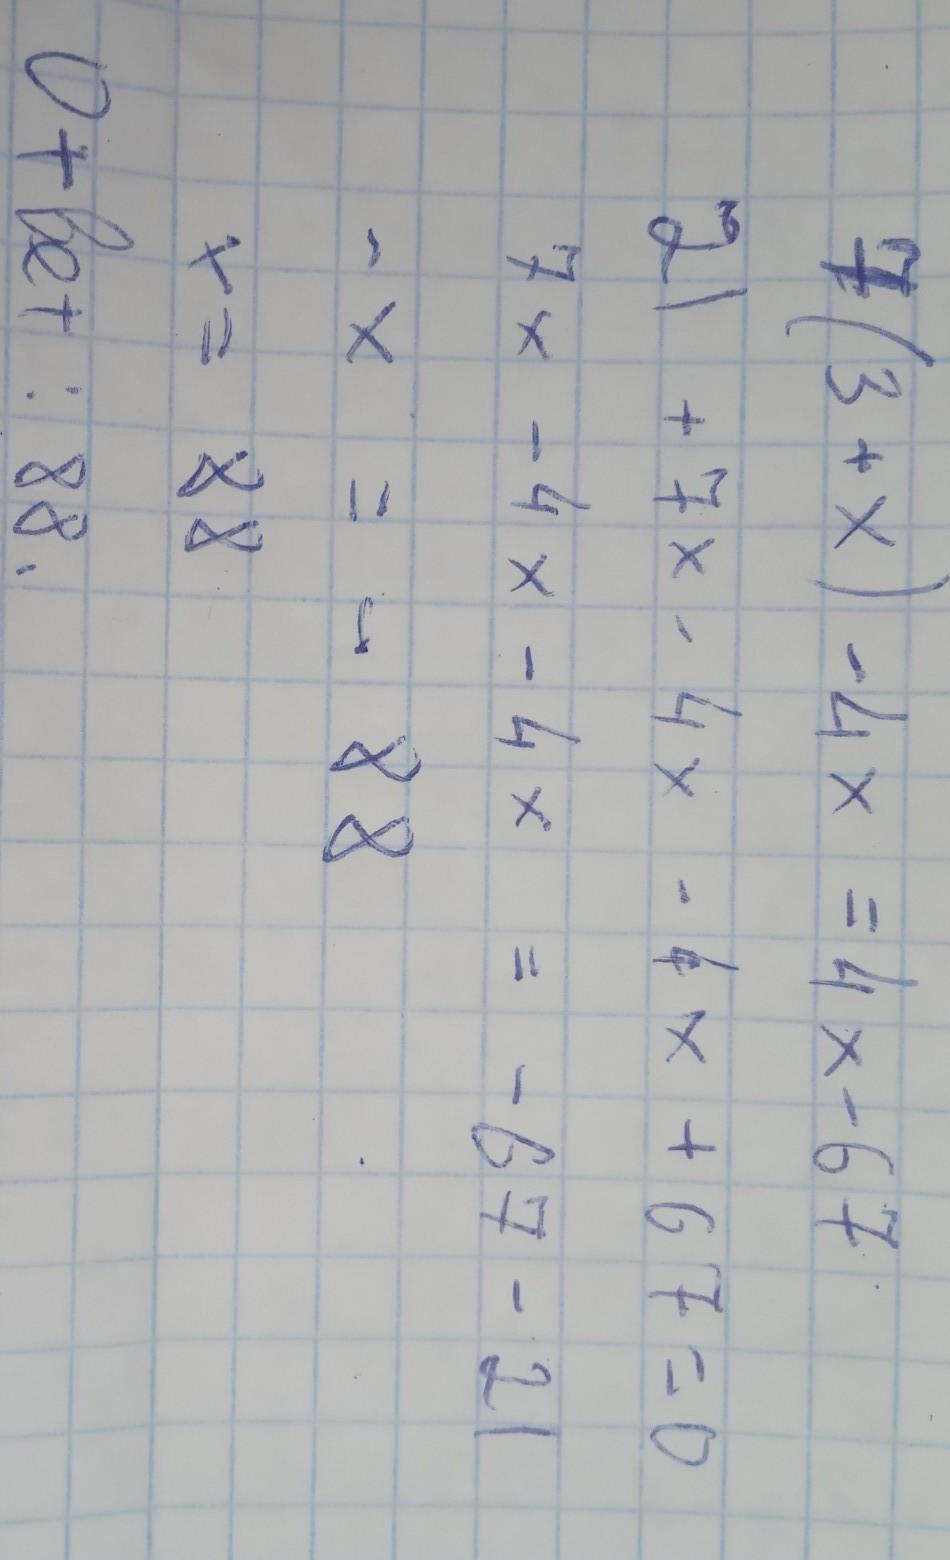 7(3+x)-4x=4x-67
21+7x-4x-4x+67=0
7x-4x-4x=-67-21
-x=-88
x=88
Ответ: 88.